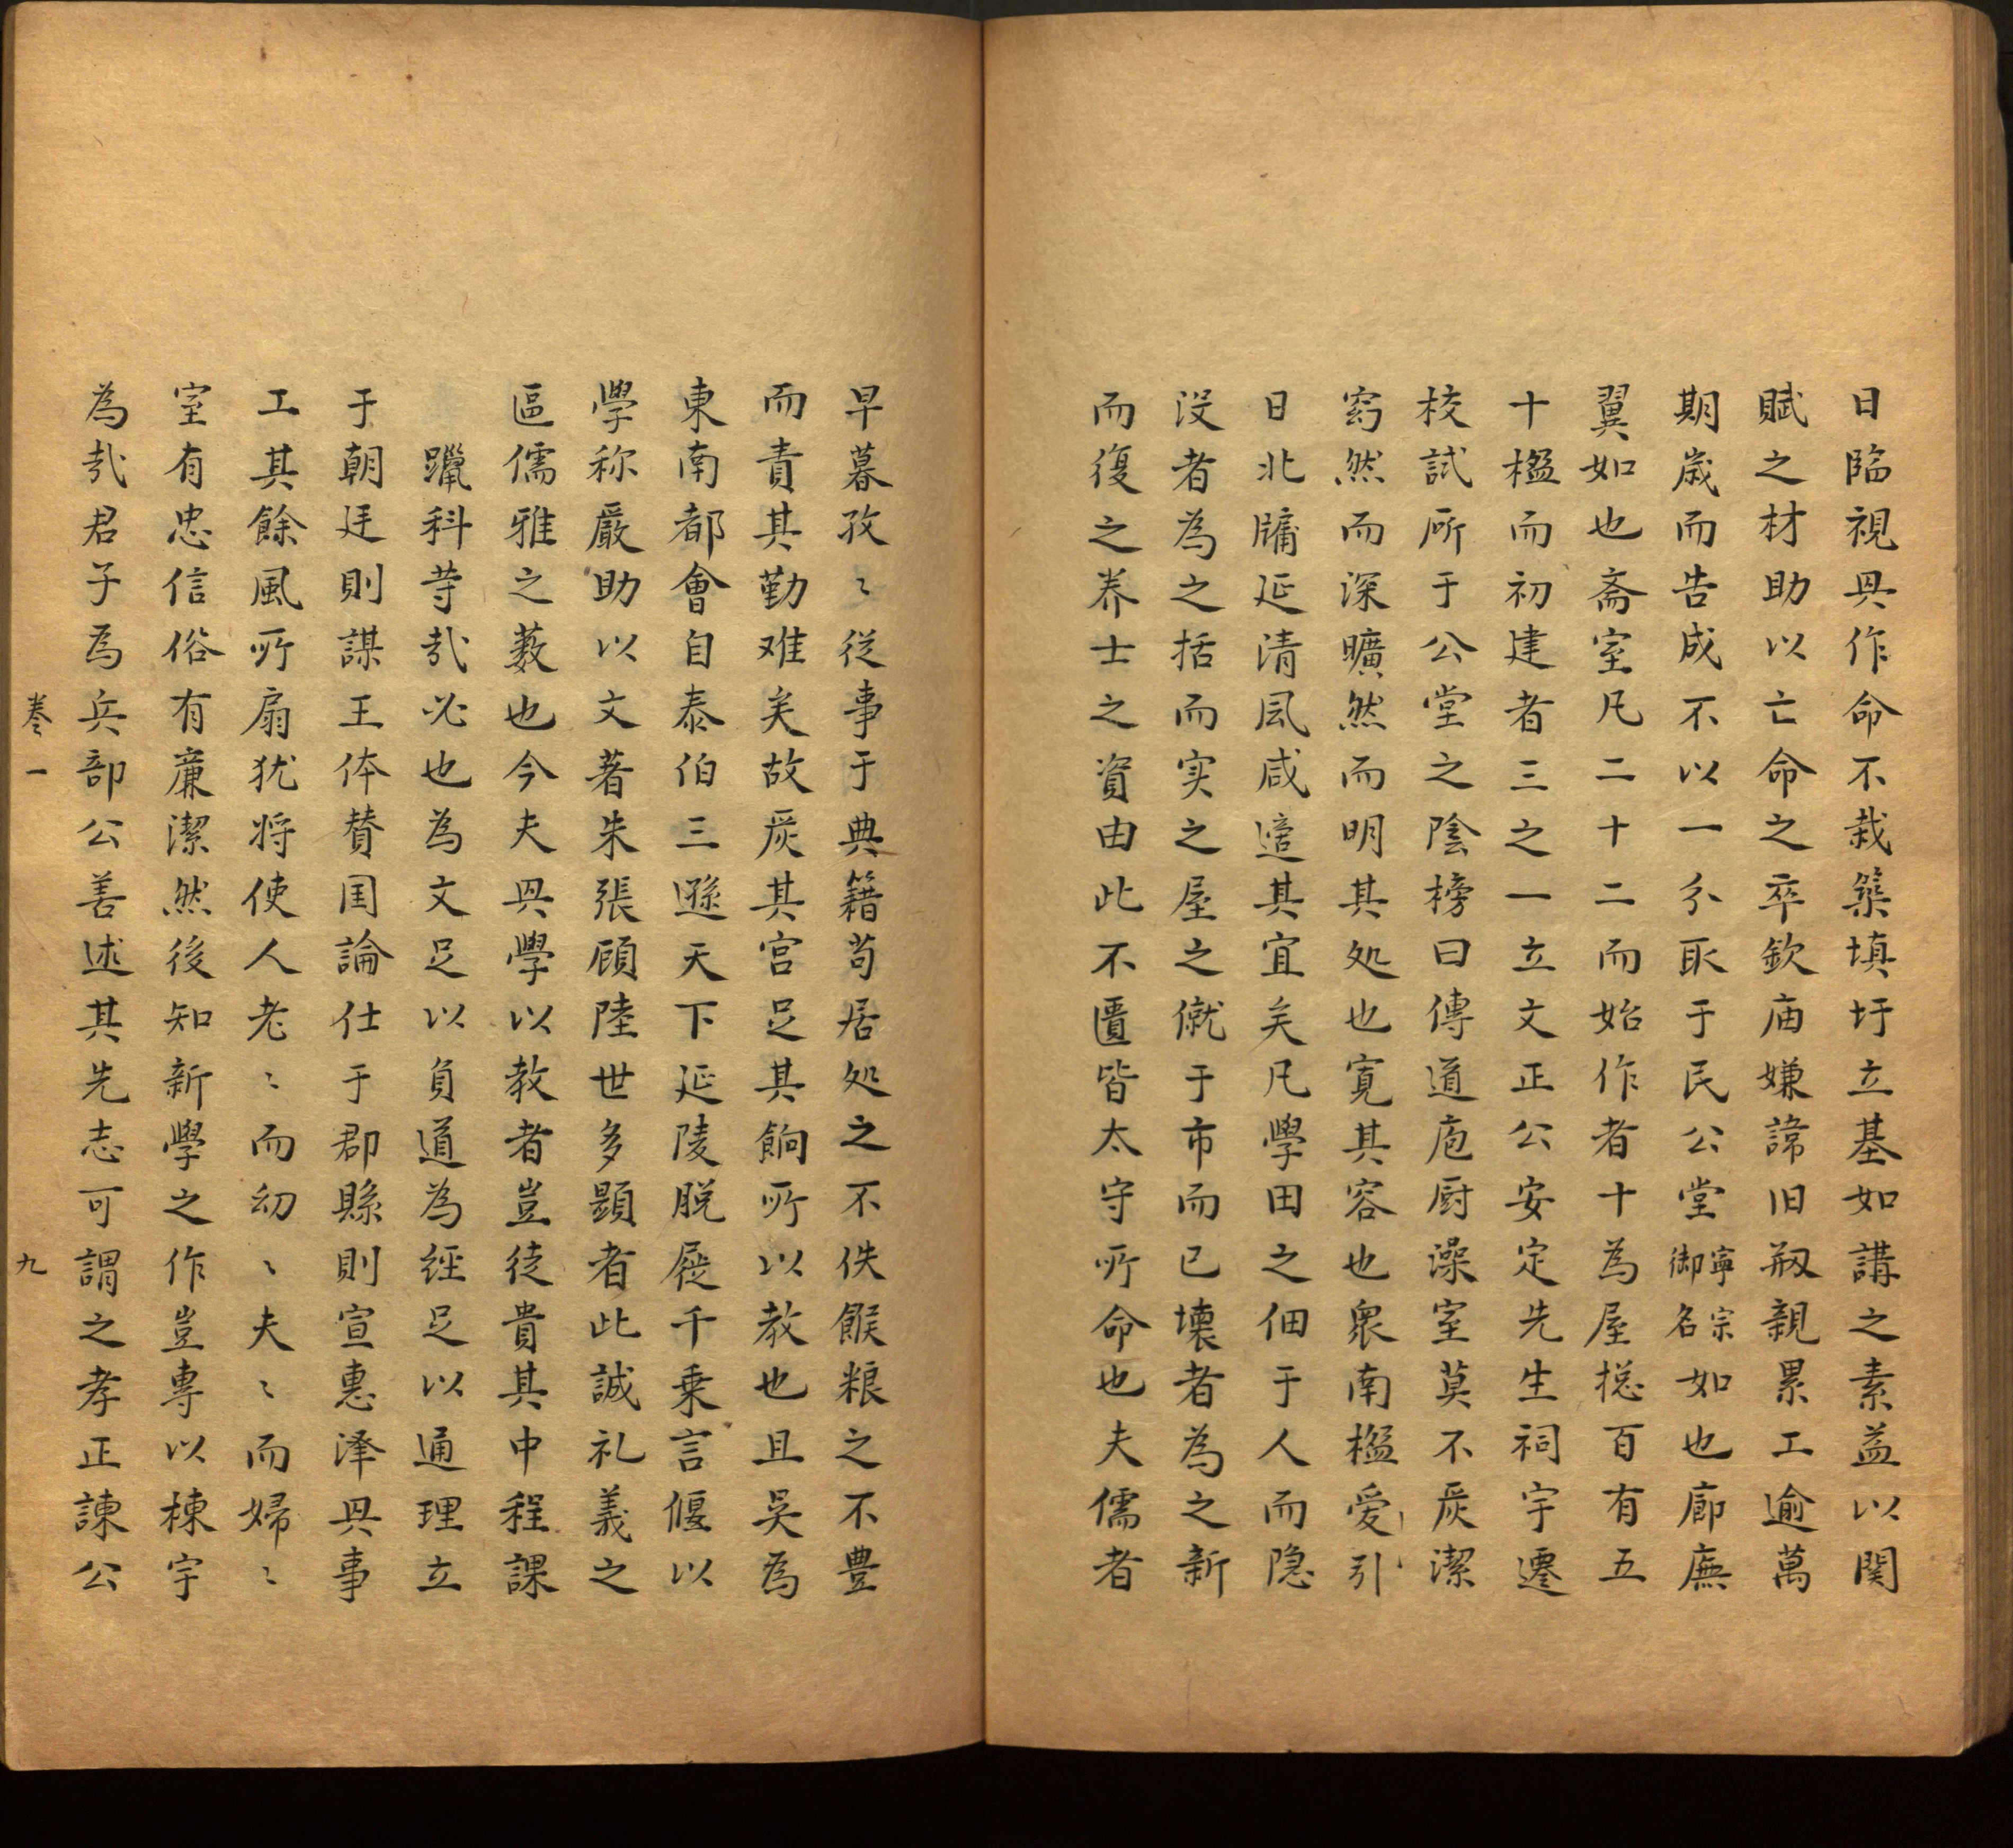 日臨視具作命不栽築填圩立基如講之素益以関
賦之材助以亡命之卒欽庙嫌諱旧剏親累工逾萬
期歳而告成不以一分取于民公堂寧宗御名如也廊廡
翼如也斋室凡二十二而始作者十為屋揔百有五
十楹而初建者三之一立文正公安定先生祠宇遷
校試所于公堂之陰榜曰傳道庖厨澡室莫不灰潔
窈然而深曠然而明其処也寛其容也衆南楹爰引
日北牖延清风咸適其宜矣凡學田之佃于人而隐
没者為之括而实之屋之僦于市而已壊者為之新
而復之养士之資由此不匱皆太守所命也夫儒者
早暮孜〻従事于典籍苟居処之不佚餱粮之不豊
而責其勤难矣故灰其宫足其餉所以教也且吴為
東南都會自泰伯三遜天下延陵脱屣千乗言偃以
學称嚴助以文著朱張顧陸世多顕者此誠礼義之
區儒雅之薮也今夫具學以教者豈徒貴其中程課
躐科苐㢤必也為文足以負道為經足以通理立
于朝廷則謀王体賛国論仕于郡縣則宣惠泽具事
工其餘風所扇犹将使人老〻而幼〻夫〻而婦〻
室有忠信俗有廉潔然後知新學之作豈專以棟宇
為㢤君子為兵部公善述其先志可謂之孝正諫公
卷一 九